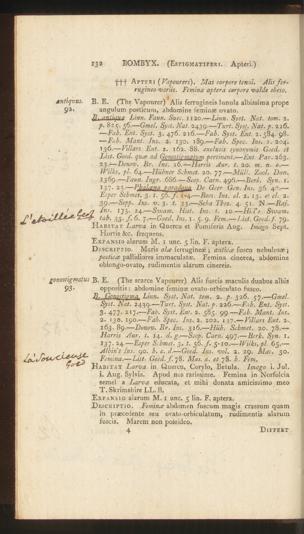 132 BOMBYX. (Estigmatiferi. Apteri.)
††† Apteri (Vapourers). Mas corpore tenui. Alis fer-
rugineo-variis. Femina aptera corpore valde obeso.
antiquus. B. E. (The Vapourer) Alis ferrugineis lunula albissima prope
92. angulum posticum, abdomine feminæ ovato.
B. antiqua Linn. Faun. Suec. 1120.—Linn. Syst. Nat. tom. 2.
p. 825. 56.—Gmel. Syst. Nat. 2439.—Turt. Syst. Nat. p. 216.
—Fab. Ent. Syst. 3. 476. 216.—Fab. Syst. Ent. 2. 584. 98.
—Fab. Mant. Ins. 2. 130. 189.—Fab. Spec. Ins. 2. 204.
156.—Villars Ent. 2. 162. 88. exclusis synonymis Goed. et
List. Goed. quæ ad Gonostigmatem pertinent.—Ent. Par. 263.
23.—Donov. Br. Ins. 16.—Harris Aur. t. 20. m. n. o.—
Wilks, pl. 64.—Hübner Schmet. 20. 77.—Müll. Zool. Dan.
1369.—Faun. Ingr. 686.—Scop. Carn. 496.—Berk. Syn. 1.
137. 23.—Phalæna paradoxa De Geer Gen. Ins. 36. 40.—
Esper Schmet. 3. t. 56. f.
39.—Sepp. Ins.
Ins. 173. 14.—Swam. Hist. Ins. t. 10.—Hill's Swam.
tab. 33. f. 6. 7.—Goed. Ins. 1. 5. 9.—List. Goed. f. 79.
Habitat Larva in Quercu et Pomiferis Aug. Imago Sept.
Hortis &c. frequens.
Expansio alarum M. 1 unc. 5 lin. F. aptera.
Descriptio. Maris alæ ferrugineæ; anticæ fusco nebulosæ;
posticæ pallidiores immaculatæ. Femina cinerea, abdomine
oblongo-ovato, rudimentis alarum cinereis.
gonostigmatis B. E. (The scarce Vapourer) Alis fuscis maculis duabus albis
93. oppositis: abdomine feminæ ovato-orbiculato.
B. Gonostigma, Linn. Syst. Nat. tom. 2. p. 826. 57.—Gmel.
Syst. Nat. 2439.—Turt. Syst. Nat. p. 226.—Fab. Ent. Syst.
3. 477. 217.—Fab. Syst. Ent. 2. 585. 99.—Fab. Mant. Ins.
2. 130. 190.—Fab. Spec. Ins. 2. 202. 157.—Villars Ent. 2.
163. 89.—Donov. Br. Ins. 316.—Hüb. Schmet. 20. 78.—
Harris Aur. t. 14. d. g.—Scop. Carn. 497.—Berk. Syn. 1.
137. 24.—Esper Schmet. 3. t. 56. f. 5-10.—Wilks, pl. 65.—
Albin's Ins. 90. b. c. d.—Goed. Ins. vol. 2. 29. Mas. 30.
Femina.—List. Goed. f. 78. Mas. et 78. b. Fem.
Habitat Larva in Quercu, Corylo, Betula. Imago i. Jul.
i. Aug. Sylvis. Apud nos rarissime. Femina in Norfolcia
semel a Larva educata, et mihi donata amicissimo meo
T. Skrimshire LL.B.
Expansio alarum M. 1 unc. 5 lin. F. aptera.
Descriptio. Feminæ abdomen fuscum magis crassum quam
in præcedente seu ovato-orbiculatum, rudimentis alarum
fuscis. Marem non possideo.
4 Differt